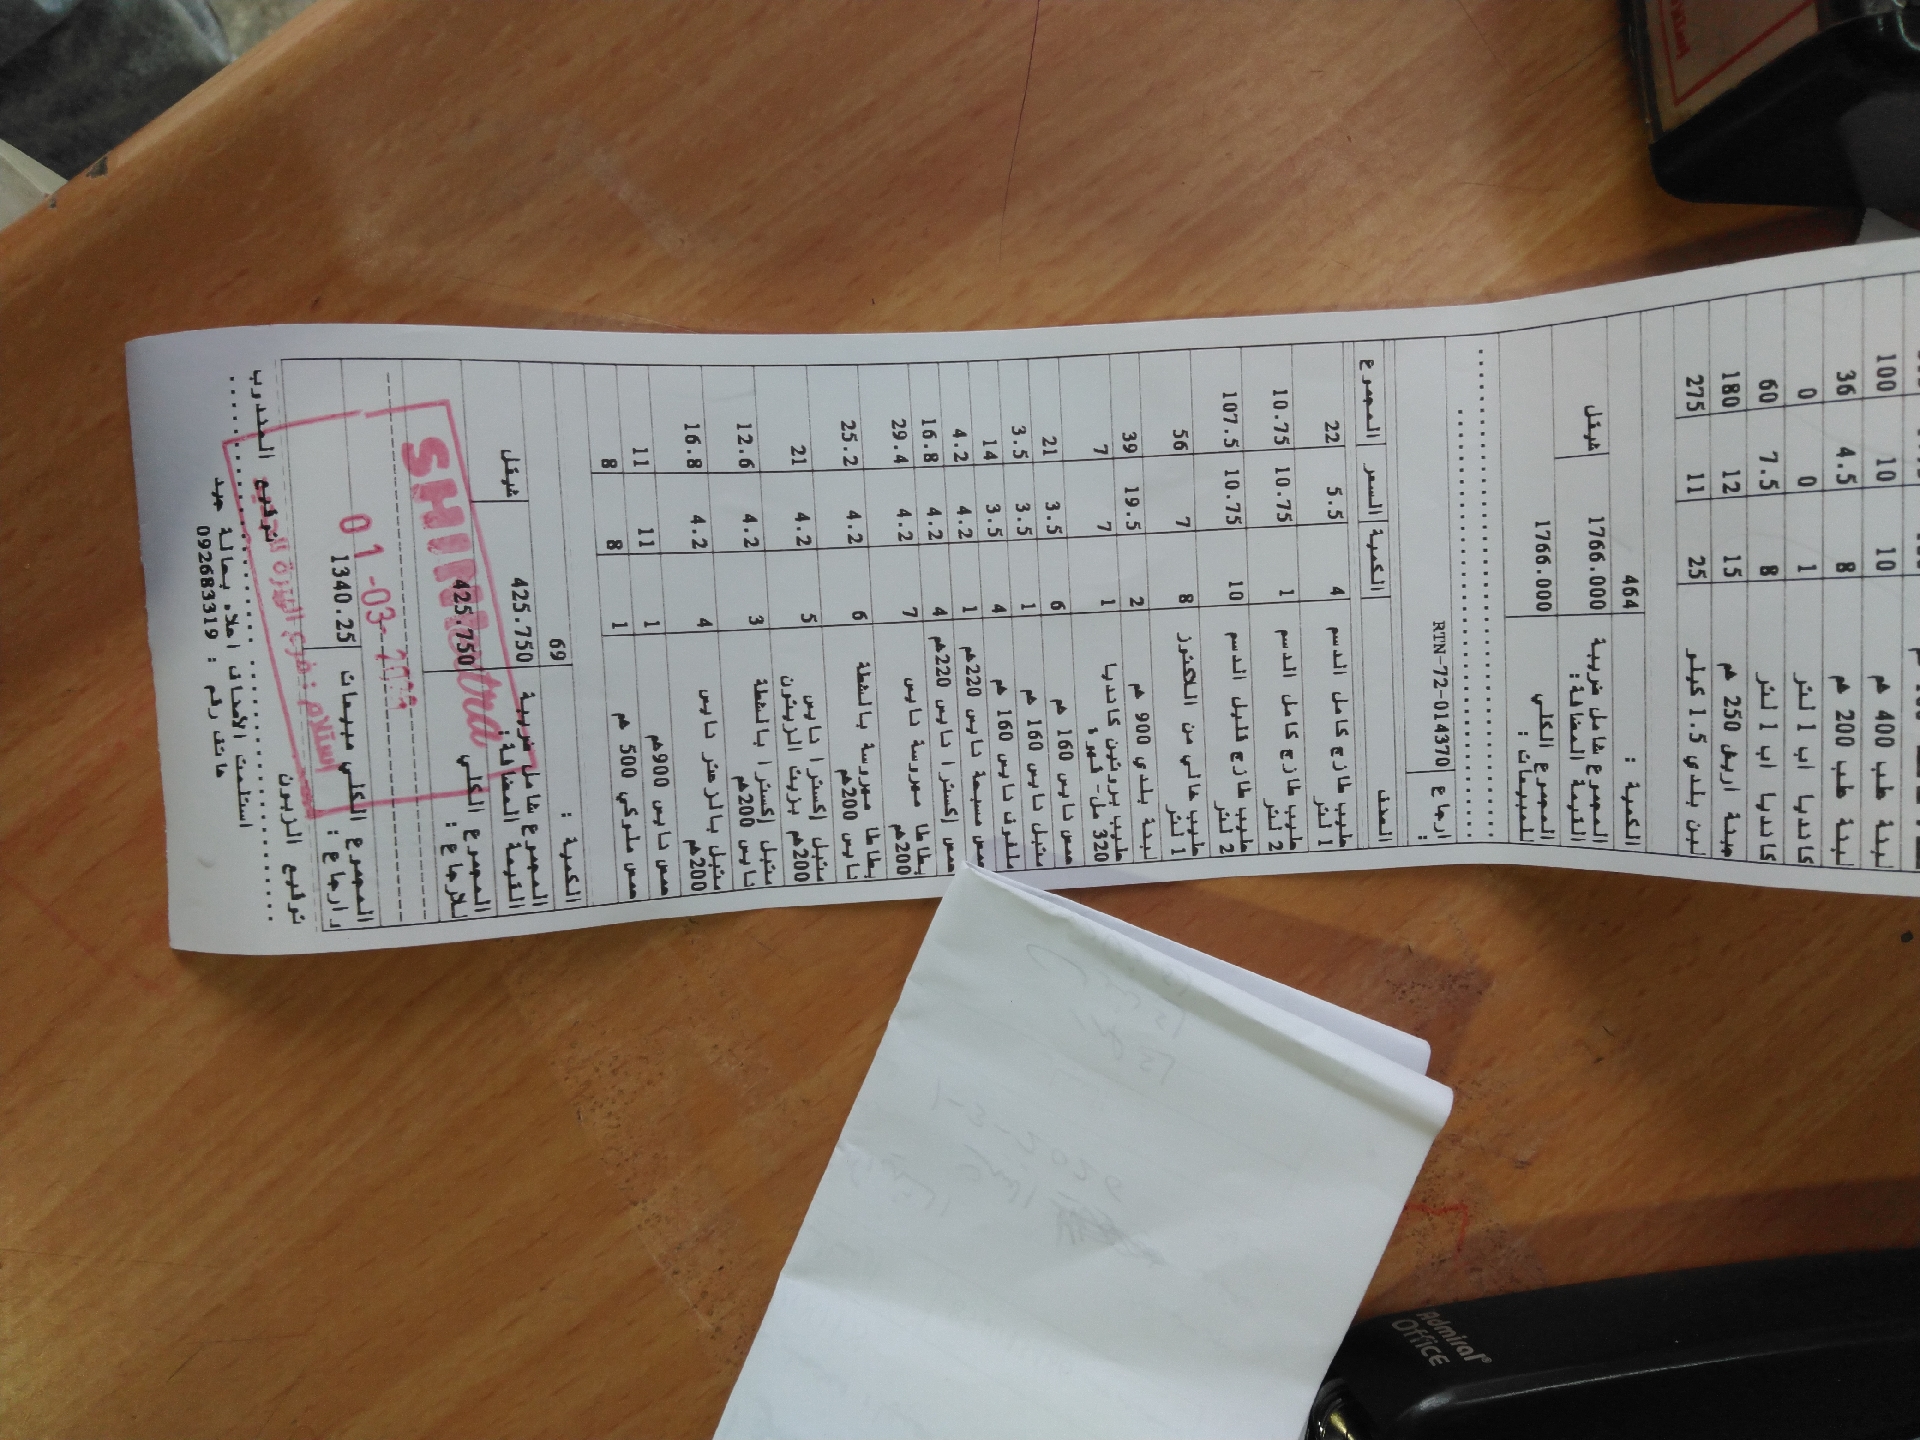 لبنة طب 400 غم 10 10 100
لبنة طب 200 غم 8 4.5 36
كانديا اب 1 لتر 8 7.5 60
كانديا اب 1 لتر 1 0 0
جبنة اريش 250 غم 15 12 180
لبن بلدي 1.5 كيلو 25 11 275
الكمية : 464
المجموع شامل ضريبة القيمة المضافة: 1766.000 شيقل
المجموع الكلي للمبيعات : 1766.000
ارجاع : RTN-72-014370
الصنف الكمية السعر المجموع
حليب طازج كامل الدسم 1 لتر 4 5.5 22
حليب طازج كامل الدسم 2 لتر 1 10.75 10.75
حليب طازج قليل الدسم 2 لتر 10 10.75 107.5
حليب خالي من اللاكتوز 1 لتر 8 7 56
لبنة بلدي 900 غم 2 19.5 39
حليب بروتين كانديا 320 مل- قهوة 1 7 7
حمص نايس 160 غم 6 3.5 21
متبل نايس 160 غم 1 3.5 3.5
ملفوف نايس 160 غم 4 3.5 14
حمص مسبحة نايس 220غم 1 4.2 4.2
حمص إكسترا نايس 220غم 4 4.2 16.8
بطاطا مهروسة نايس 200غم 7 4.2 29.4
بطاطا مهروسة بالشطة نايس 200غم 6 4.2 25.2
متبل إكسترا نايس بزيت الزيتون 200غم 5 4.2 21
متبل إكسترا بالشطة نايس 200غم 3 4.2 12.6
متبل بالزعتر نايس 200غم 4 4.2 16.8
حمص نايس 900غم 1 11 11
حمص ملوكي 500 غم 1 8 8
الكمية : 69
المجموع شامل ضريبة القيمة المضافة: 425.750 شيقل
المجموع الكلي للارجاع : 425.750
المجموع الكلي مبيعات و ارجاع : 1340.25
SHINI extra
01-03-
استلام فرع البيرة
توقيع الزبون توقيع المندوب
استلمت الأصناف اعلاه بحالة جيد
هاتف رقم : 092683319
Admiral
OFFICE